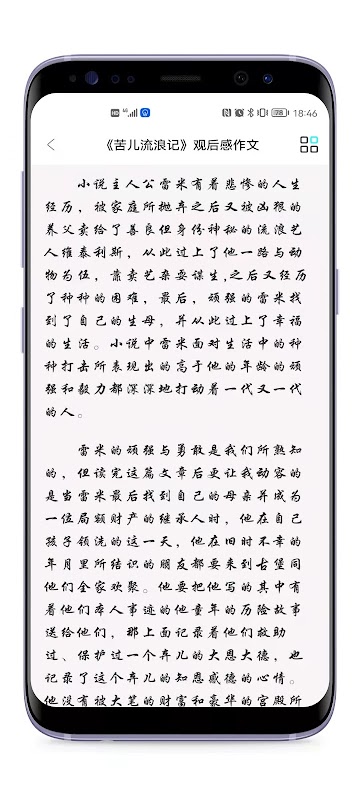 18:46
《苦儿流浪记》观后感作文
小说主人公雷米有着悲惨的人生
经历，被家庭所抛弃之后又被凶狠的
养父卖给了善良但身份神秘的流浪艺
人维泰利斯，从此过上了他一路与动
物为伍，靠卖艺杂耍谋生,之后又经历
了种种的困难，最后，顽强的雷米找
到了自己的生母，并从此过上了幸福
的生活。小说中雷米面对生活中的种
种打击所表现出的高于他的年龄的顽
强和毅力都深深地打动着一代又一代
的人。
雷米的顽强与勇敢是我们所熟知
的，但读完这篇文章后更让我动容的
是当雷米最后找到自己的母亲并成为
一位局额财产的继承人时，他在自己
孩子领洗的这一天，他在旧时不幸的
年月里所结识的朋友都要来到古堡同
他们全家欢聚。他要把他写的其中有
着他们本人事迹的他童年的历险故事
送给他们，那上面记录着他们救助
过、保护过一个弃儿的大恩大德，也
记录了这个弃儿的知恩感德的心情。
他没有被大笔的财富和豪华的宫殿所